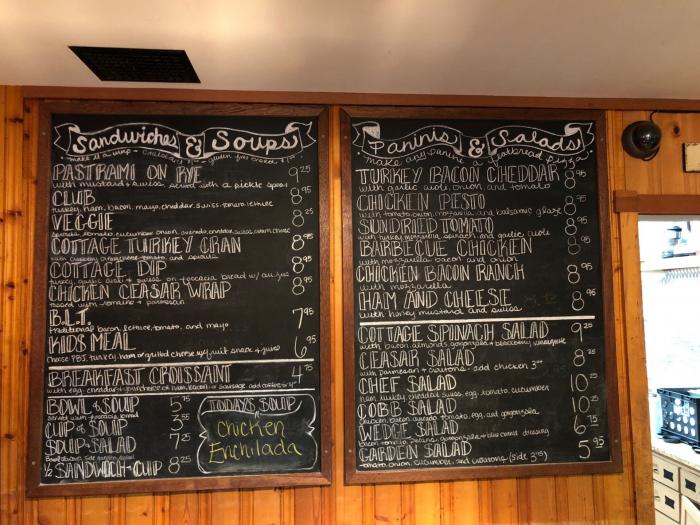 Sandwiches & Soups
make it a wrap gluten free bread
PASTRAMI ON RYE 9 25
with mustard & swiss, served with a pickle spear
CLUB 8 95
turkey, ham, bacon, mayo, cheddar, swiss, tomato, lettuce
VEGGIE 8 25
sprouts, tomato, cucumber, onion, avocado, cheddar, swiss, cream cheese
COTTAGE TURKEY CRAN 8 95
with cranberry cream cheese tomato and sprouts
COTTAGE DIP 8 95
turkey, garlic aioli & swiss on foccacia bread w/ au jus
CHICKEN CEASAR WRAP 8 95
tossed with romaine & parmesan
B.L.T. 7 95
traditional bacon, lettuce, tomato, and mayo
KIDS MEAL 6 95
choose PB&J, turkey, ham or grilled cheese w/ fruit snack & juice
BREAKFAST CROISSANT 4 75
with egg, cheddar & your choice of ham, bacon or sausage add coffee
BOWL of SOUP 5 75
served with foccacia bread
CUP of SOUP 3 55
SOUP & SALAD 7 25
Bowl of soup, side garden salad
1/2 SANDWICH & CUP 8 25
TODAY'S SOUP
Chicken
Enchilada
Paninis & Salads
make any panini a flatbread pizza
TURKEY BACON CHEDDAR 8 95
with garlic aioli, onion, and tomato
CHICKEN PESTO 8 95
with tomato, onion, mozzarella, and balsamic glaze
SUNDRIED TOMATO 8 95
with turkey, mozzarella, spinach, and garlic aioli
BARBECUE CHICKEN 8 95
with mozzarella bacon and onion
CHICKEN BACON RANCH 8 95
with mozzarella
HAM AND CHEESE 8 95
with honey mustard and swiss
COTTAGE SPINACH SALAD 9 25
with bacon, almonds, gorgonzola & blackberry vinaigrette
CEASAR SALAD 8 25
with parmesan & croutons add chicken 3
CHEF SALAD 10 25
ham, turkey, cheddar, swiss, egg, tomato, cucumber
COBB SALAD 10 25
chicken, bacon, avocado, tomato, egg, and gorgonzola
WEDGE SALAD 6 75
bacon, tomato, pecans, gorgonzola & blue cheese dressing
GARDEN SALAD 5 95
tomato, onion, cucumber, and croutons (side 3 95)